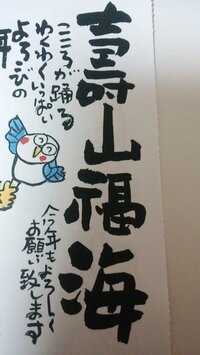 壽山福海
こころが踊る
わくわくいっぱい
よろこびの
今年もよろしく
お願い致します